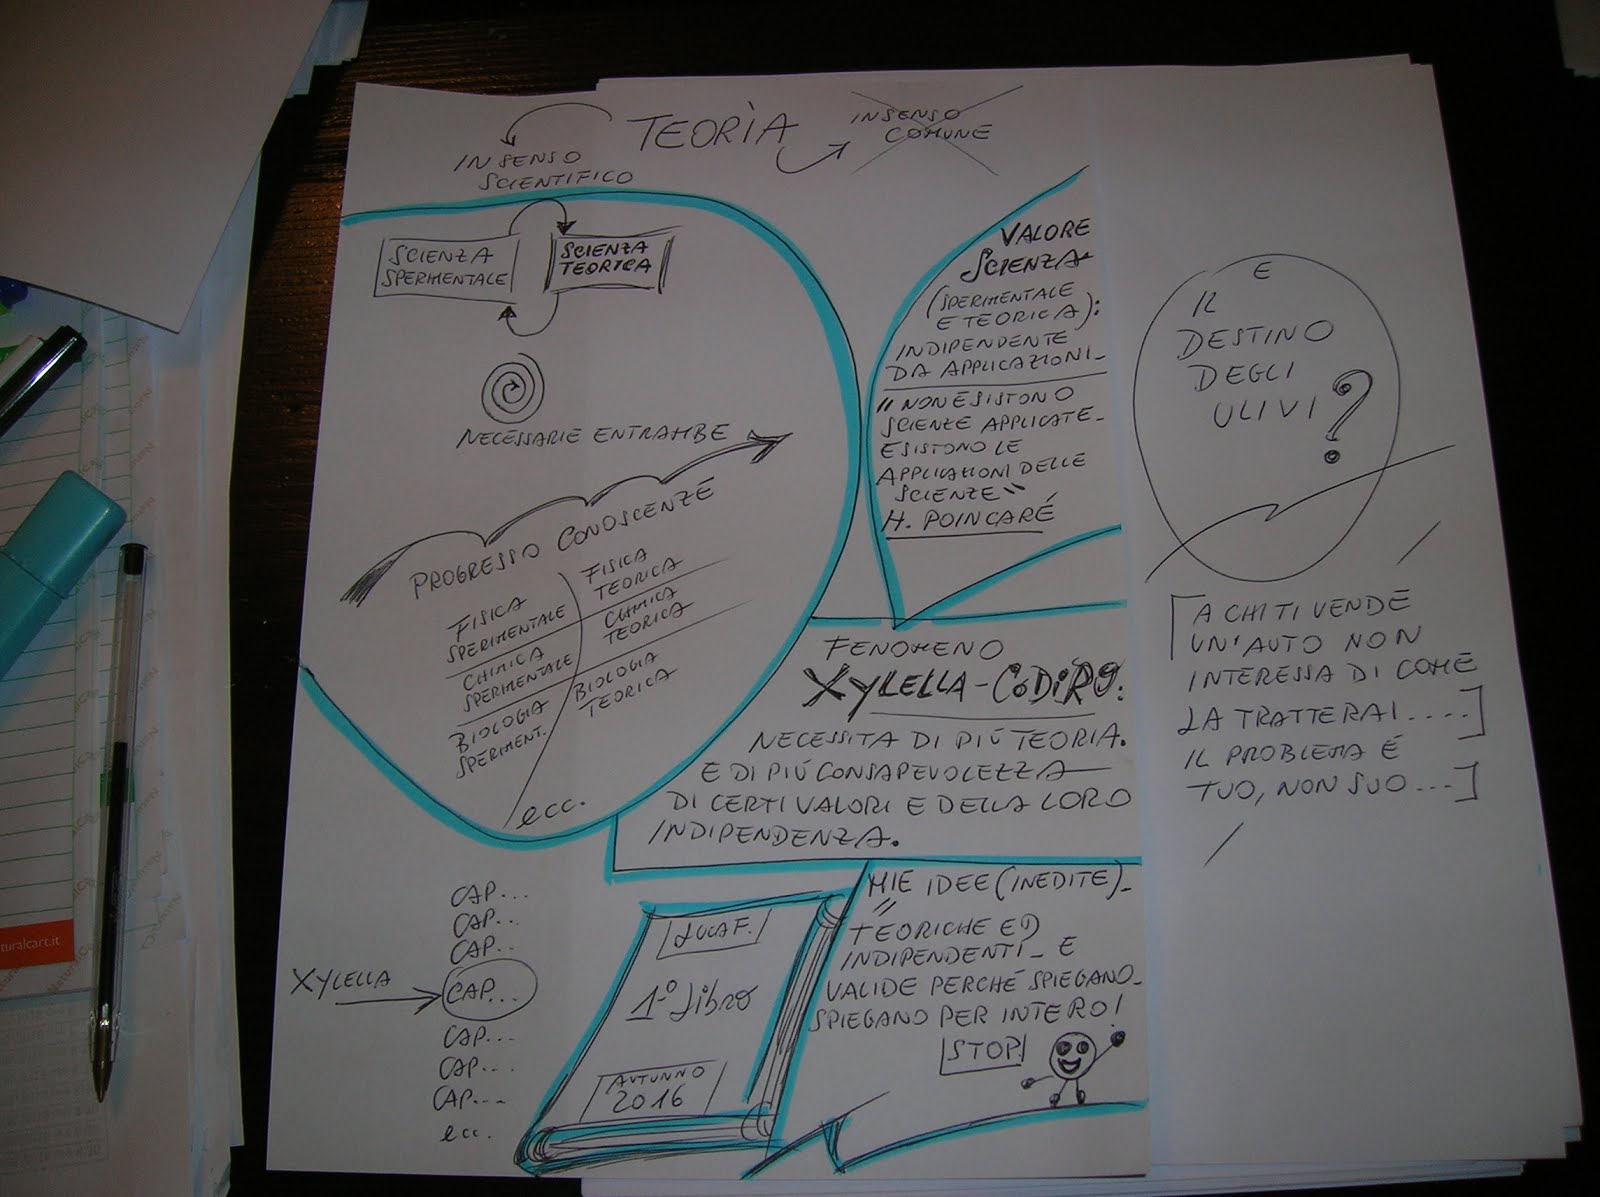 TEORÌA
IN SENSO
COMUNE
IN SENSO
SCIENTIFICO
SCIENZA
SPERIMENTALE
SCIENZA
TEORICA
NECESSARIE ENTRAMBE
PROGRESSO CONOSCENZE
FISICA
SPERIMENTALE
FISICA
TEORICA
CHIMICA
SPERIMENTALE
CHIMICA
TEORICA
BIOLOGIA
SPERIMENT.
BIOLOGIA
TEORICA
ecc.
VALORE
SCIENZA
(SPERIMENTALE
E TEORICA):
INDIPENDENTE
DA APPLICAZIONI_
"NON ESISTONO
SCIENZE APPLICATE_
ESISTONO LE
APPLICAZIONI DELLE
SCIENZE"
H. POINCARÉ
FENOMENO
XYLELLA-CoDiRO:
NECESSITA DI PIÙ TEORIA.
E DI PIÙ CONSAPEVOLEZZA
DI CERTI VALORI E DELLA LORO
INDIPENDENZA.
CAP...
CAP...
CAP...
XYLELLA CAP...
CAP...
CAP...
CAP...
ecc.
LUCA F.
1º Libro
AUTUNNO
2016
MIE IDEE (INEDITE)_
TEORICHE ED
INDIPENDENTI_ E
VALIDE PERCHÉ SPIEGANO_
SPIEGANO PER INTERO!
STOP!
E
IL
DESTINO
DEGLI
ULIVI?
[A CHI TI VENDE
UN'AUTO NON
INTERESSA DI COME
LA TRATTERAI....]
IL PROBLEMA É
TUO, NON SUO...]
turalcart.it